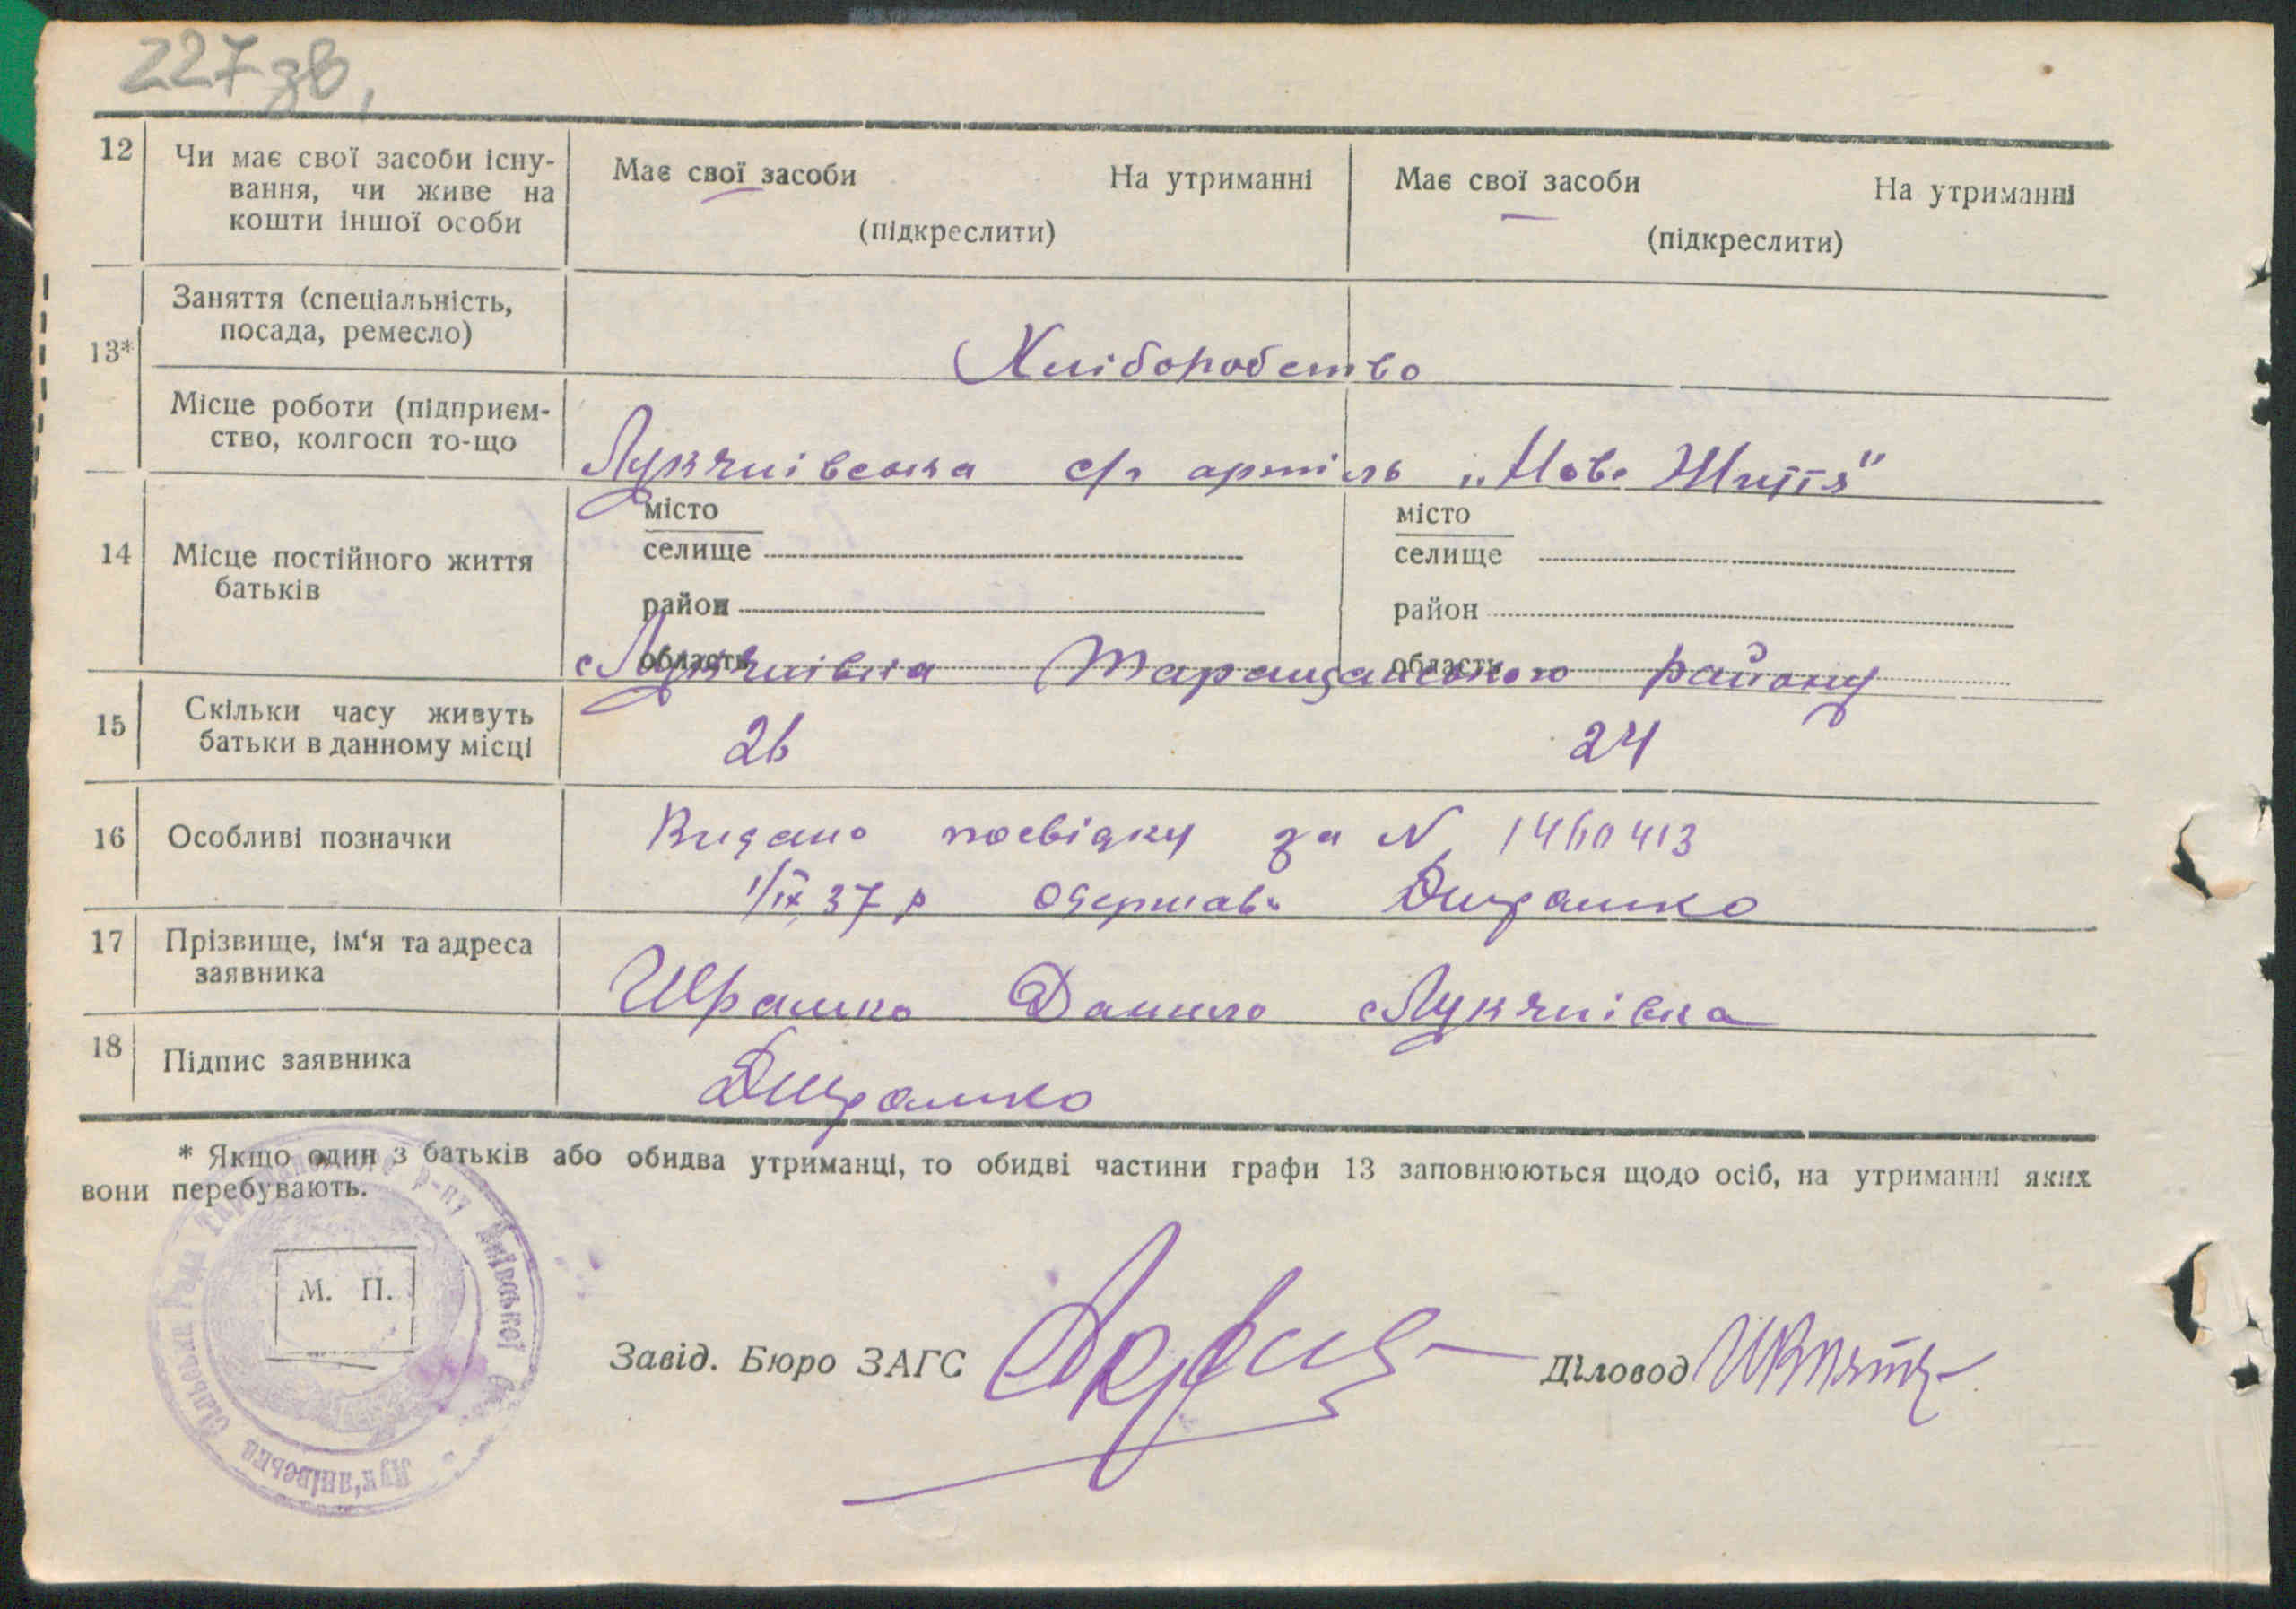 227 зв,
12 Чи має свої засоби існу-
вання, чи живе на
кошти іншої особи
Має свої засоби На утриманні
(підкреслити)
Має свої засоби На утриманні
(підкреслити)
13* Заняття (спеціальність,
посада, ремесло)
Хліборобство
Місце роботи (підприєм-
ство, колгосп то-що
Лукянівська с/г артіль „Нове Життя"
14 Місце постійного життя
батьків
місто
селище
район
область
місто
селище
район
область
с Лукянівка Таращанського району
15 Скільки часу живуть
батьки в данному місці
26 24
16 Особливі позначки
Видано посвідку за N
1/IX 37 р одержав
17 Прізвище, ім'я та адреса
заявника
Шрамко Данило с Лукянівка
18 Підпис заявника
ДШрамко
* Якщо один з батьків або обидва утриманці, то обидві частини графи 13 заповнюються щодо осіб, на утриманні яких
вони перебувають.
М. П.
Лук'янівська Сільська Рада р-ну Київської
Завід. Бюро ЗАГС
Діловод